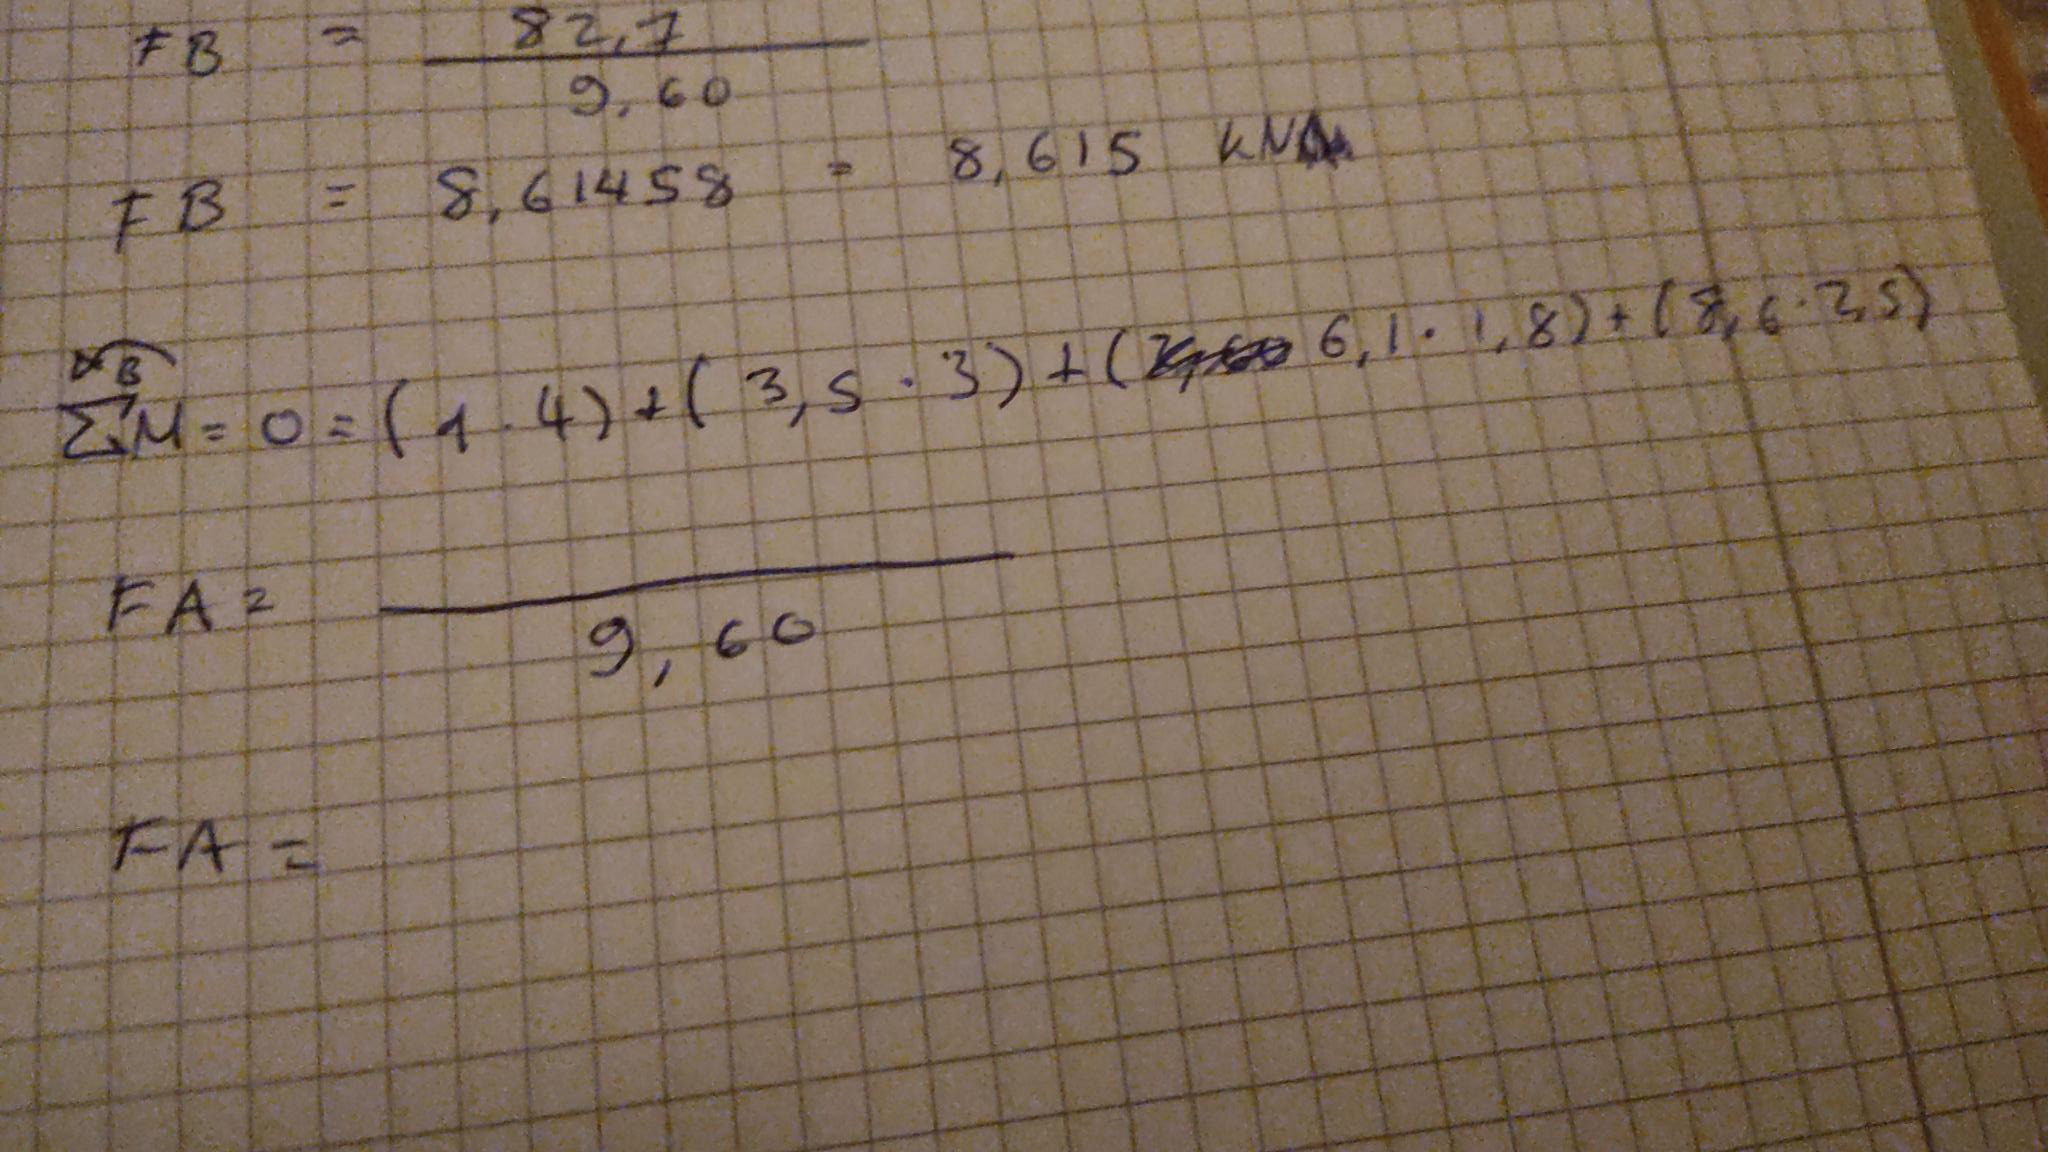 FB = 82,7
9,60
FB = 8,61458 = 8,615 kN
B
ΣM = 0 = (1 · 4) + (3,5 · 3) + ( 6,1 · 1,8) + (8,6 · 2,5)
FA =
9,60
FA =